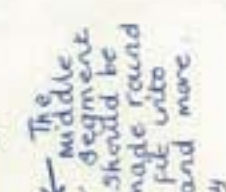 The
middle
segment
should be
made round
fit into
and more